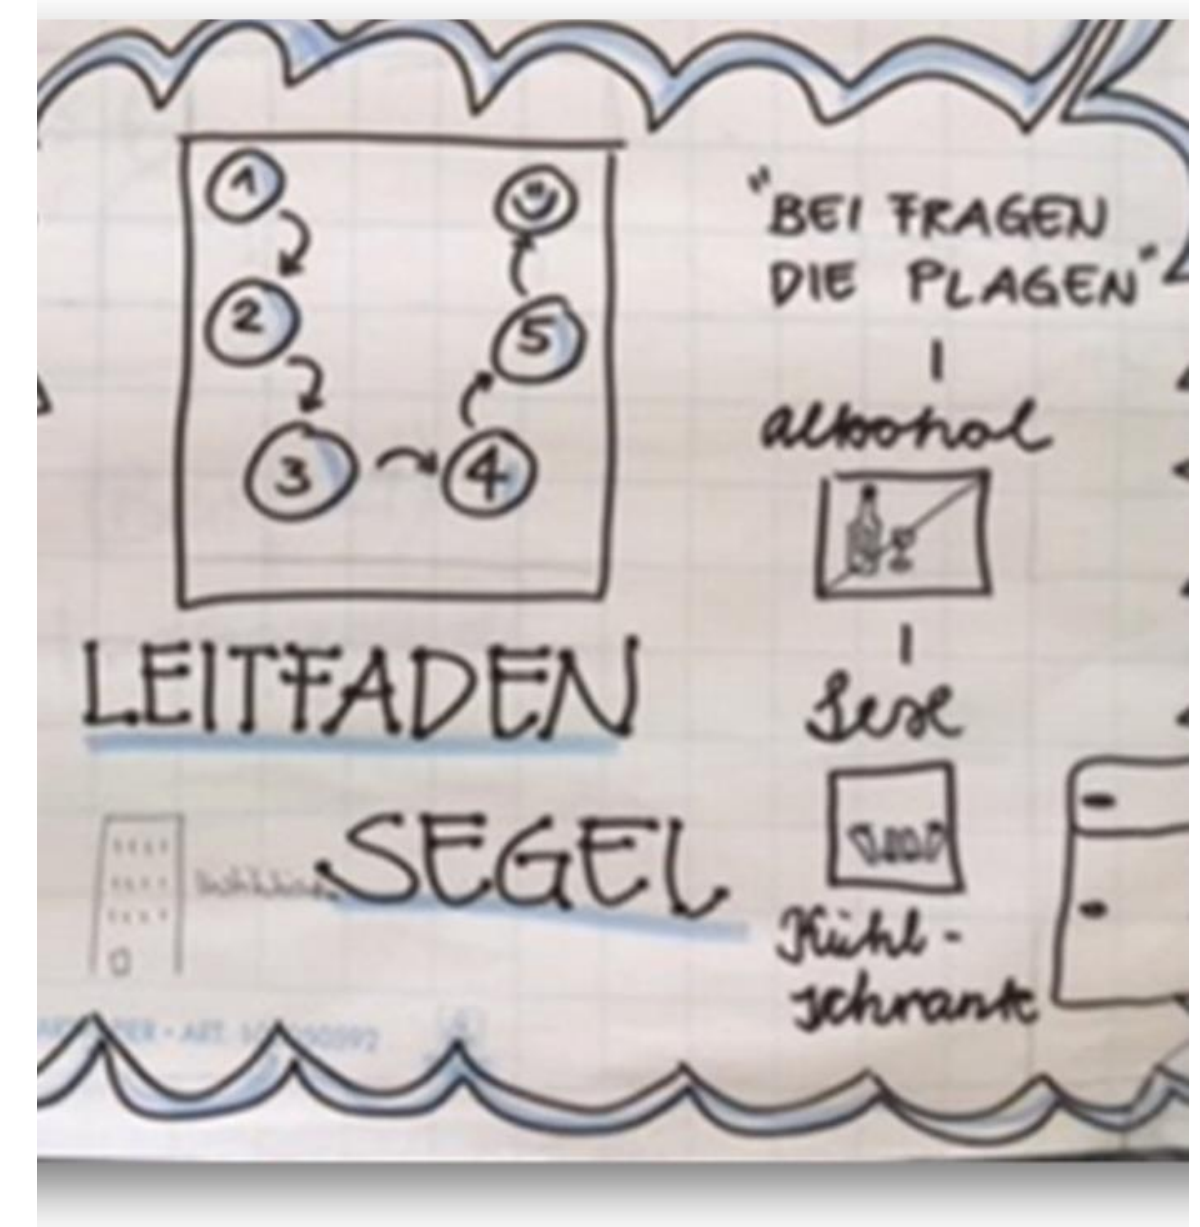 1
2
3
4
5
LEITFADEN
SEGEL
"BEI FRAGEN
DIE PLAGEN"
alkohol
Sese
Kühl-
schrank